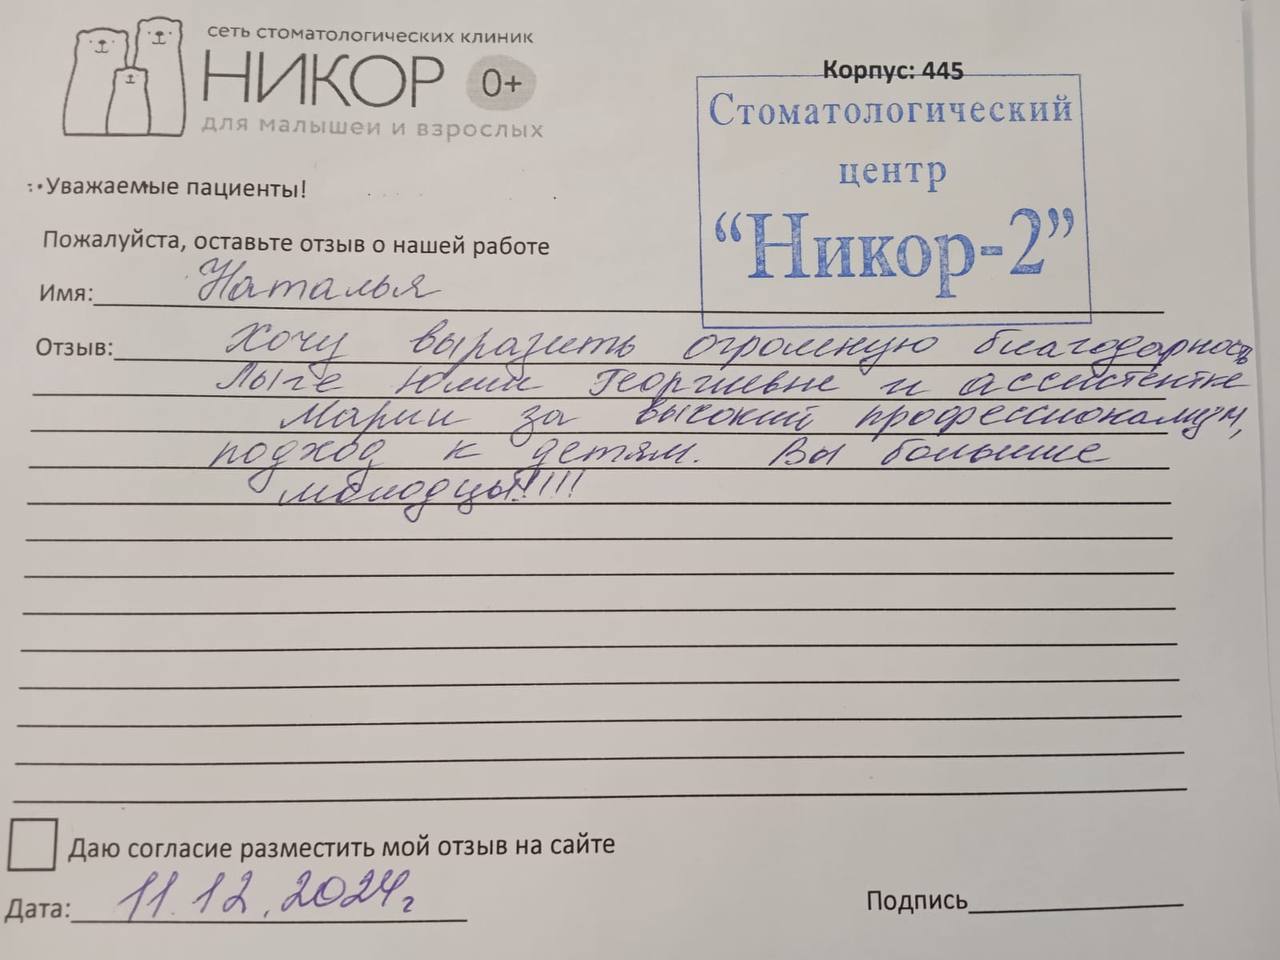 сеть стоматологических клиник
НИКОР 0+
для малышей и взрослых
Корпус: 445
Стоматологический
центр
“Никор-2”
Уважаемые пациенты!
Пожалуйста, оставьте отзыв о нашей работе
Имя: Наталья
Отзыв: Хочу выразить огромную благодарность
Лыге Юлии Георгиевне и ассистентке
Марии за высокий профессионализм,
подход к детям. Вы большие
молодцы!!!!!
Даю согласие разместить мой отзыв на сайте
Дата: 11.12.2024г
Подпись